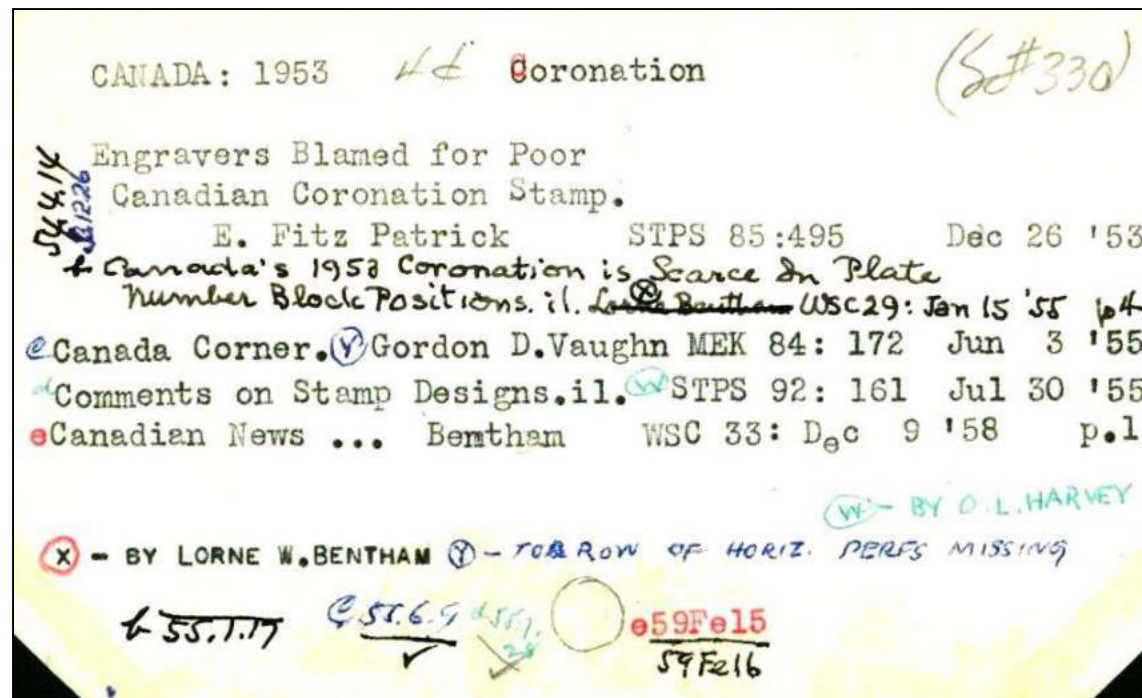 CANADA: 1953 4¢ Coronation (S#330)
Engravers Blamed for Poor
Canadian Coronation Stamp.
E. Fitz Patrick STPS 85:495 Dec 26 '53
54.4.14
b Canada's 1953 Coronation is Scarce In Plate
Number Block Positions. il. Ⓧ WSC 29: Jan 15 '55 p4
c Canada Corner. Ⓨ Gordon D.Vaughn MEK 84: 172 Jun 3 '55
d Comments on Stamp Designs.il. Ⓦ STPS 92: 161 Jul 30 '55
e Canadian News ... Bentham WSC 33: Dec 9 '58 p.1
Ⓦ - BY O.L.HARVEY
Ⓧ - BY LORNE W.BENTHAM Ⓨ - TOP ROW OF HORIZ. PERFS MISSING
b 55.1.17 C 55.6.9 e59Fe15
59Fe16